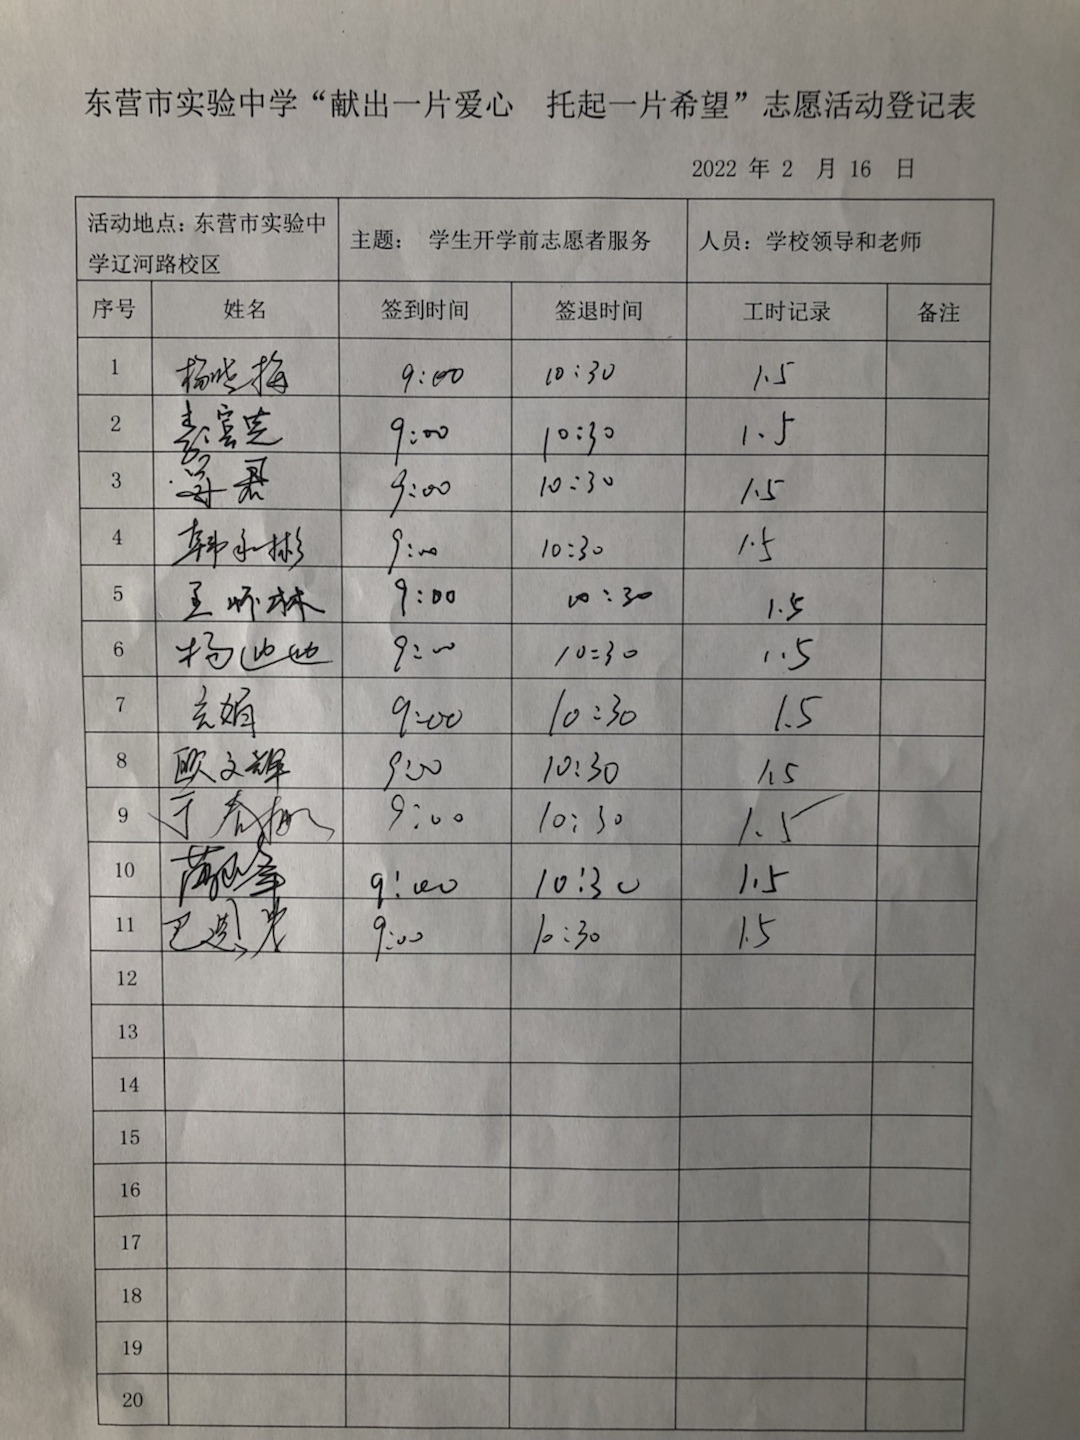 东营市实验中学“献出一片爱心 托起一片希望”志愿活动登记表
2022 年 2 月 16 日
活动地点：东营市实验中学辽河路校区 主题： 学生开学前志愿者服务 人员：学校领导和老师
序号 姓名 签到时间 签退时间 工时记录 备注
1 杨晓梅 9:00 10:30 1.5
2 9:00 10:30 1.5
3 9:00 10:30 1.5
4 韩永彬 9:00 10:30 1.5
5 9:00 10:30 1.5
6 杨 9:00 10:30 1.5
7 娟 9:00 10:30 1.5
8 欧文辉 9:00 10:30 1.5
9 于春梅 9:00 10:30 1.5
10 9:00 10:30 1.5
11 巴 9:00 10:30 1.5
12
13
14
15
16
17
18
19
20